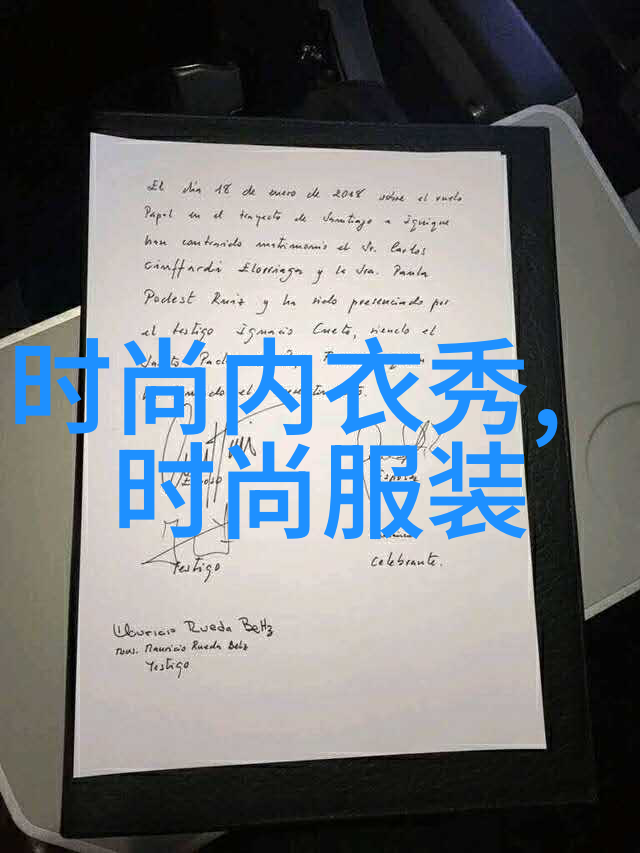 El día 18 de enero de 2018 sobre el vuelo
Papal en el trayecto de Santiago a Iquique
han contraido matrimonio el Sr. Carlos
Ciuffardi Elorriaga y la Sra. Paula
Podest Ruiz y ha sido presenciado por
el testigo Ignacio Cueto, siendo el
Santo
时尚内衣秀,
时尚服装
Esposo
Esposa
Testigo
Celebrante.
Mauricio Rueda Beltz
Mons. Mauricio Rueda Beltz
Testigo